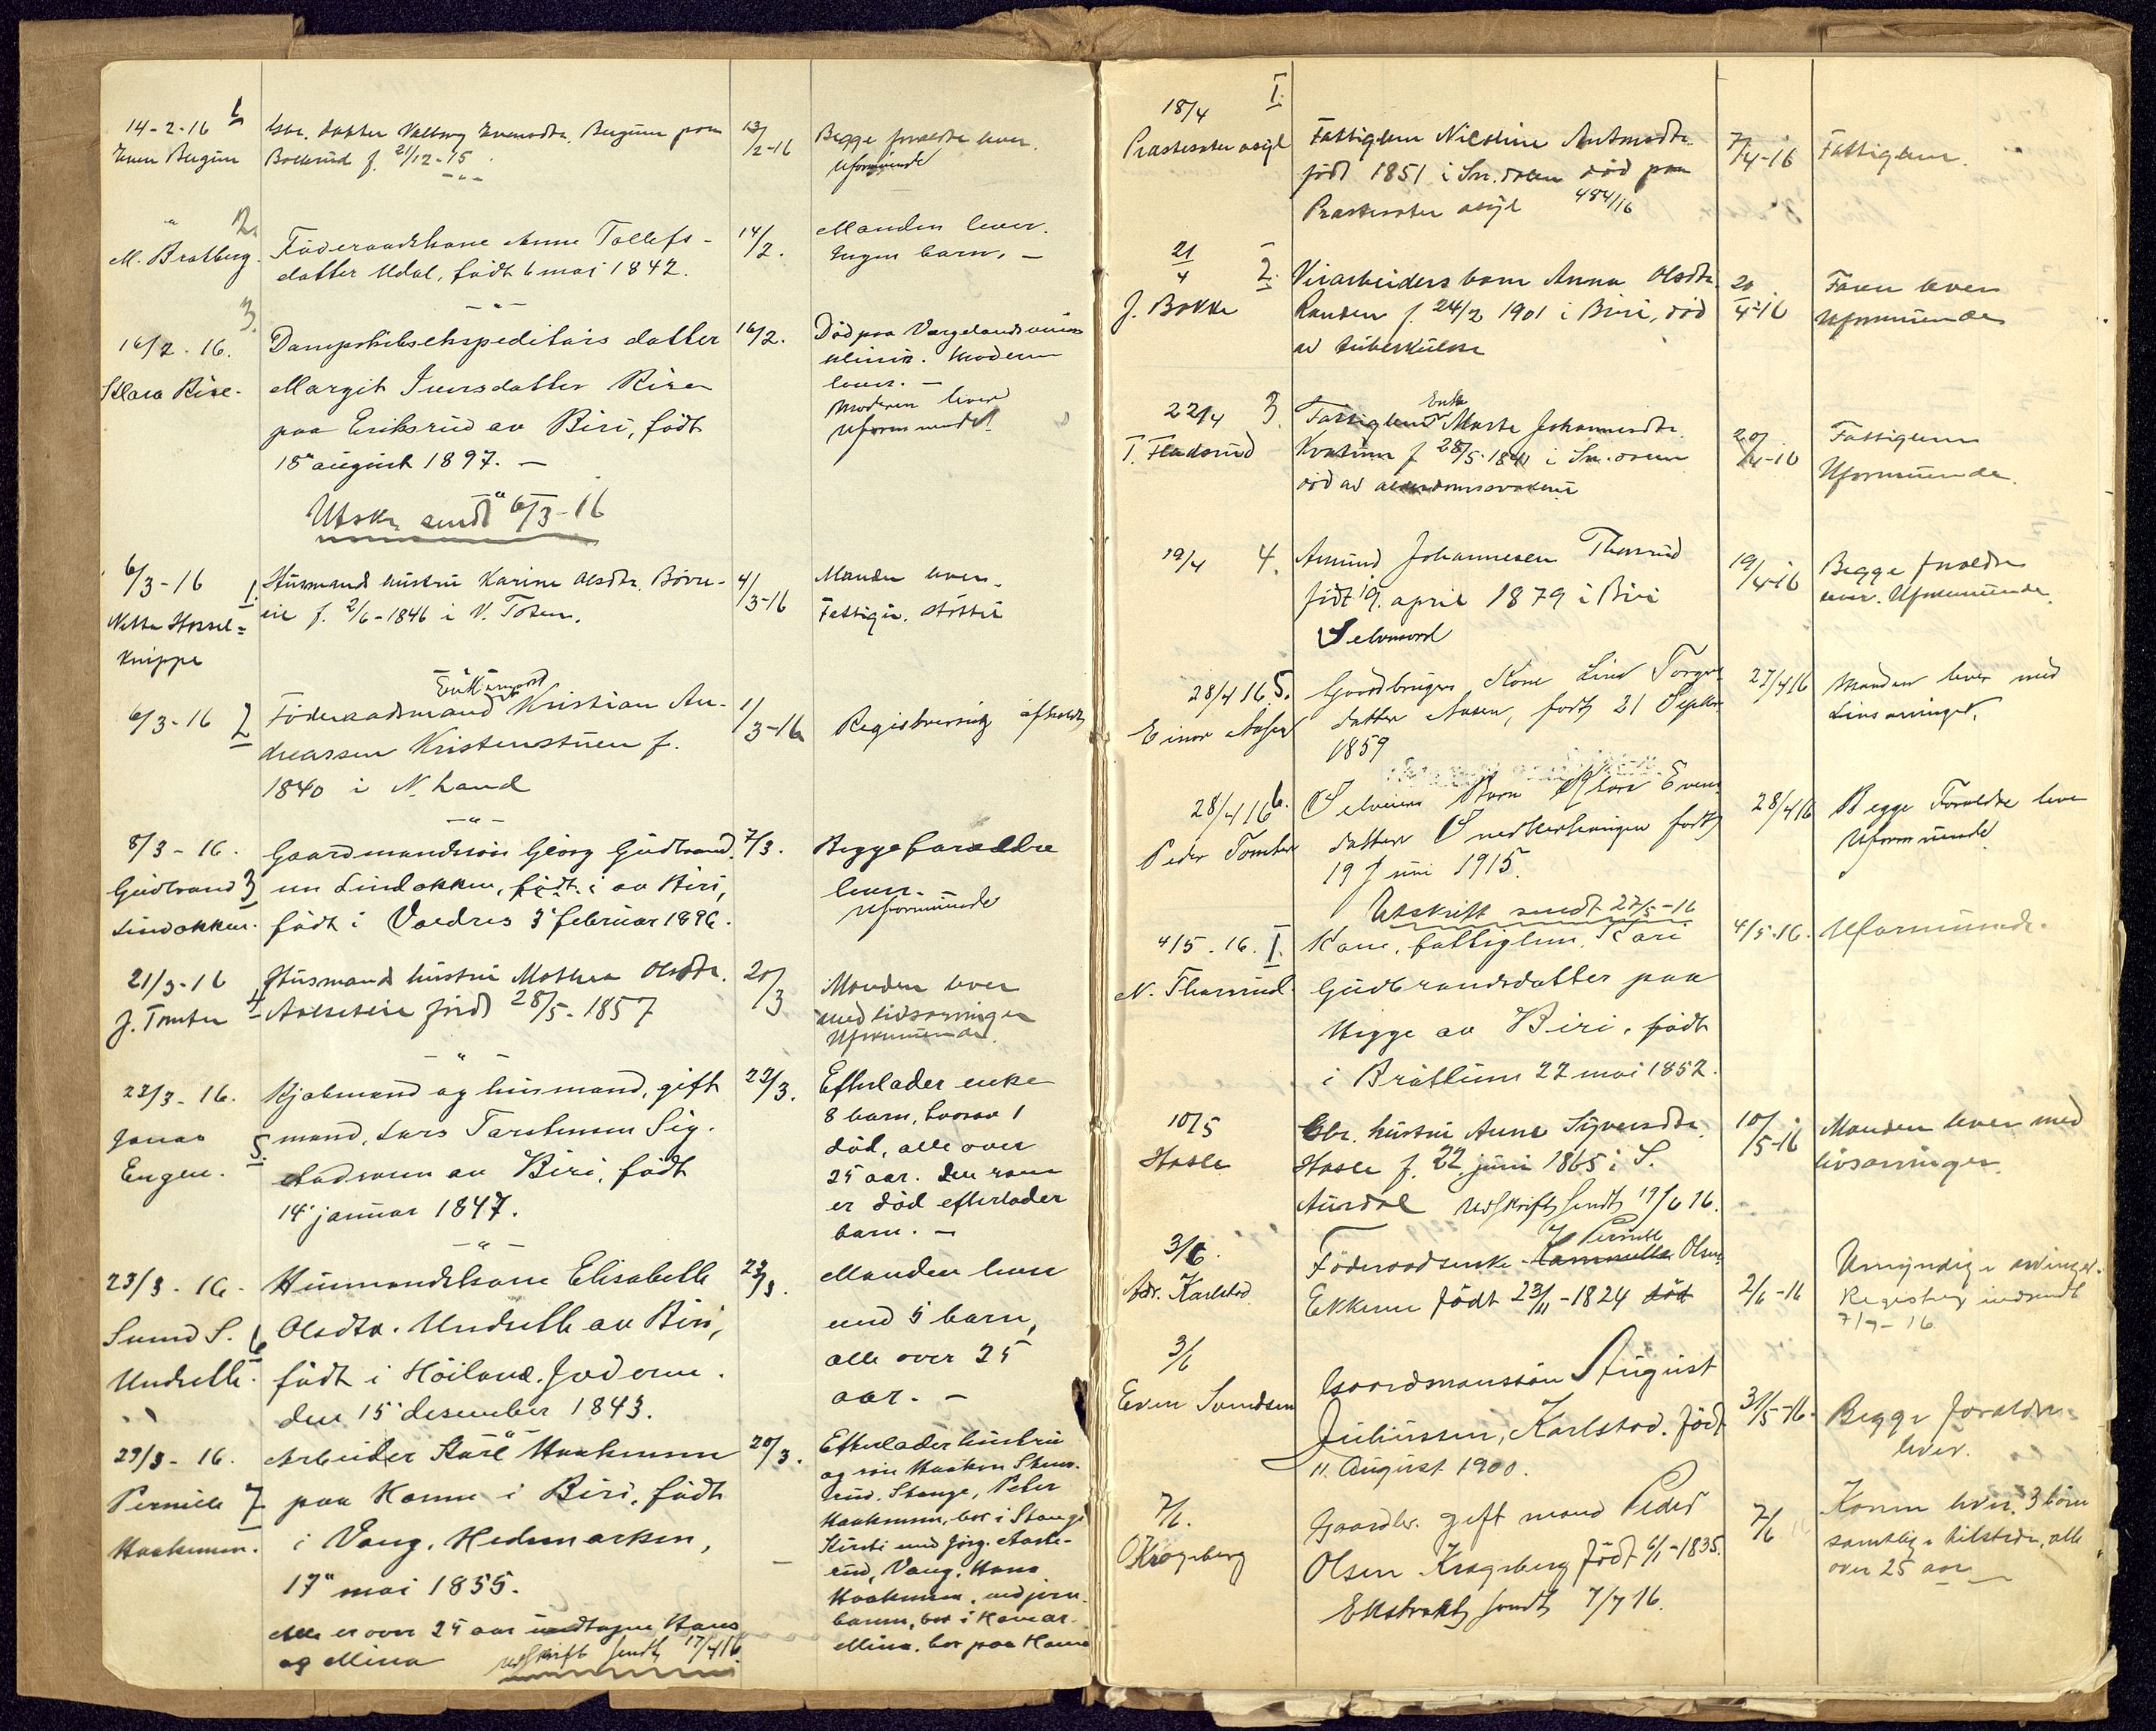 14-2-16 1
Even Bergum
Gbr. datter Valborg Evensdtr. Bergum paa
Bollerud f. 21/12-15
13/2-16
Begge foreldre lever.
Uformuende
-"-
" 2.
M. Bratberg.
Föderaadskone Anne Tollefs-
datter Udal, født 6 mai 1842.
14/2.
Manden lever.
Ingen barn. -
-"-
3.
16/2. 16.
Klara Rise.
Dampskibsekspeditørs datter
Margit Iversdatter Rise
paa Eriksrud av Biri, født
18 august 1897. -
16/2.
Død paa
klinik. Moderen
lever. -
Moderen lever
uformuende
-"-
Utskr. sendt 6/3-16
6/3-16 1.
Netta Hossel=
knippe
Husmands hustru Karine Olsdtr. Börre-
eie f. 2/6-1846 i V. Toten.
4/3-16
Manden lever.
Fattigu. støttet
6/3-16 2
Enkemand
Föderaadsmand Kristian An-
dreassen Kristenstuen f.
1840 i N. Land
1/3-16
Registrering afholdt
-"-
8/3-16.
Gudbrand 3
Lindokken.
Gaardmandssøn Georg Gudbrand-
sen Lindokken, født i av Biri,
født i Valdres 3 februar 1896.
7/3.
Begge foreldre
lever.
Uformuende
21/3-16
J. Tomter 4
Husmands hustru Mathea Olsdtr.
født 28/5-1857
20/3
Manden lever
med livsarvinger
Uformuende.
-"-
23/3-16.
Jonas 5.
Engen.
Kjøbmand og husmand, gift
mand, Lars Torstensen Sig-
stadsveen av Biri, født
14 januar 1847.
22/3.
Efterlader enke
8 barn, hvorav 1
død, alle over
25 aar. Den som
er död efterlader
barn. -
-"-
23/3-16.
Svend S. 6
Undseth.
Husmandskone Elisabeth
Olsdtr. Undseth av Biri,
født i Höiland, Jæderen.
den 15 desember 1843.
23/3.
Manden lever
med 5 barn,
alle over 25
aar. -
-"-
29/3-16.
Pernille 7
Haakensen.
Arbeider Karl Haakensen
paa Honne i Biri, født
i Vang, Hedemarken,
17 mai 1855.
Alle er over 25 aar undtagen Hans
og Mina
Udskrift sendt 17/4 16
28/3.
Efterlader hustru
og søn Haakon
Stange, Peter
Haakensen, bor i Stange
Kirsti med Jörg.
Vang, Hans
Haakensen, ved jern-
banen, bor i Hamar.
Mina, bor paa Honne
18/4 I.
Præstesæter asyl
Fattiglem Nicoline Antonsdtr.
født 1851 i Sn. dalen död paa
Præstesæter asyl 484/16
7/4-16
Fattiglem.
21/4 2.
J. Bokke
Veiarbeiders barn Anna Olsdtr.
Randen f. 24/2 1901 i Biri, död
av tuberkulose
20/4-16
Faren lever
Uformuende
22/4 3.
T. Fladsrud
Enke
Fattiglem Marte Johannesdtr.
f 28/5-1841 i Sn. dalen
död av alderdomssvakhet
20/4-16
Fattiglem
Uformuende.
19/4 4.
Amund Johannesen Thosrud
født 19. april 1879 i Biri
Selvmord
19/4-16
Begge foreldre
lever. Uformuende.
28/4 16 5.
Einar Aasen
Gaardbrugers Kone Lina Torgers
datter Aasen, født 21 Septbr
1859
27/4 16
Manden lever med
Livsarvinger.
28/4 16 6.
Peder Tomter
Selveiers Barn Klara Evens
datter Snedkerhaugen født
19 Juni 1915.
28/4 16
Begge Foreldre lever
Uformuende
Utskrift sendt 27/5-16
4/5. 16. I.
N. Thosrud.
Kone, fattiglem, Kari
Gudbrandsdatter paa
Higge av Biri, født
i Bröttum 22 mai 1852.
4/5-16.
Uformuende.
10/5
Hasle
Gbr. hustru Anne Syversdtr.
Hasle f. 22 juni 1865 i S.
Aurdal Udskrift sendt 19/6 16.
10/5-16
Manden lever med
livsarvinger.
3/6.
Adr. Karlstad
Pernille
Föderaadsenke Olsen
Ekkern født 23/11-1824 död
2/6-16
Umyndige arvinger.
Registrering indsendt
7/7-16
3/6
Even Svendsen
Gaardmanssøn August
Juliussen, Karlstad. født
11. August 1900.
31/5-16.
Begge foreldre
lever.
7/6.
O Kragsberg
Gaardbr. gift mand Peder
Olsen Kragsberg født 6/1-1835.
Ekstrakt sendt 7/7 16.
7/6
Konen lever, 3 børn
samtlige tilstede, alle
over 25 aar